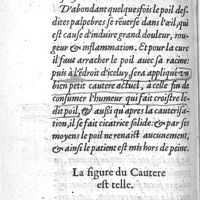 D'abondant quelquesfois le poil des-
dites palpebres se reuerse dans l'œil, qui
est cause d'induire grand douleur, rou-
geur & inflammation. Et pour la cure
il faut arracher le poil auec sa racine:
puis à l'ēdroit d'iceluy, sera appliqué vn
bien petit cautere actuel, à celle fin de
consumer l'humeur qui fait croistre le-
dit poil, & aussi qu'apres la cauterisa-
tion, il se fait cicatrice solide: & par tel
moyens le poil ne renaist aucunement,
& ainsi le patient est mis hors de peine.
La figure du Cautere
est telle.